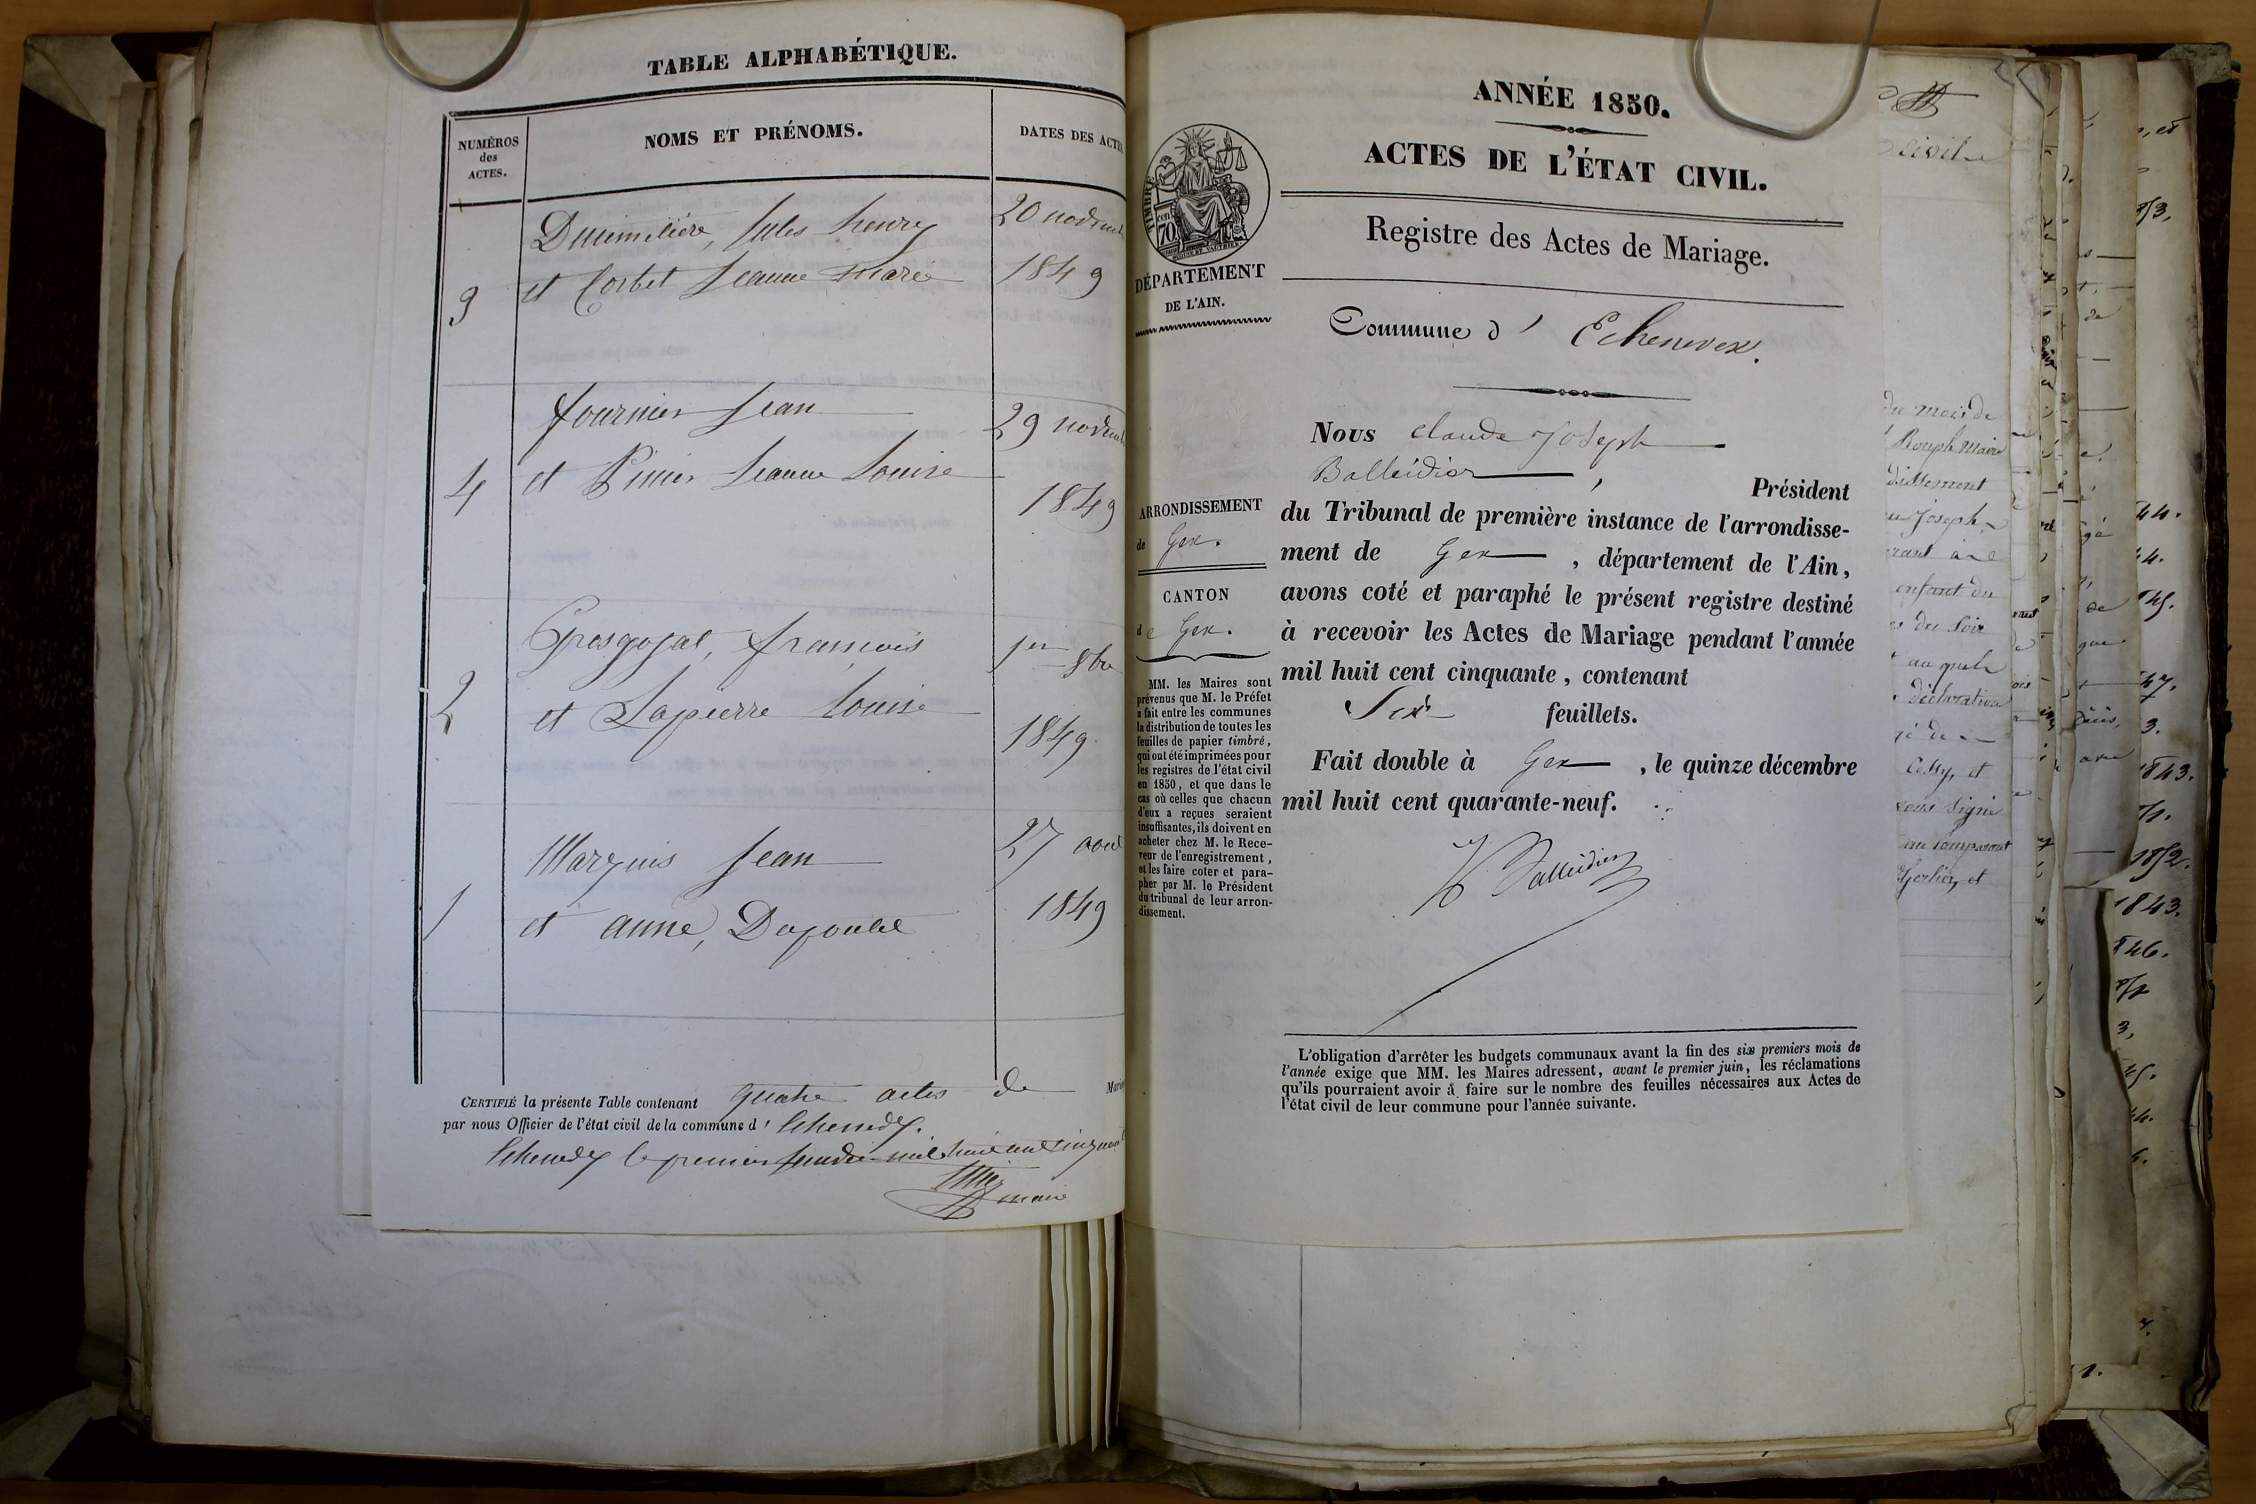 TABLE ALPHABÉTIQUE.
NUMÉROS
des
ACTES.
NOMS ET PRÉNOMS.
DATES DES ACTES
Jules henry
20 novemb
3
et Corbet Jeanne Marie
1849
fournier Jean
29 novemb
4
et Jeanne Louise
1849
Grosgojat, françois
1er 8bre
2
et Lapierre Louise
1849
Marquis Jean
27 aout
1
et anne, Dajoubé
1849
CERTIFIÉ la présente Table contenant quatre actes de Mari
par nous Officier de l'état civil de la commune d' Echenevex.
Echenevex le premier janvier mil huit cent cinquante
maire
ANNÉE 1850.
ACTES DE L'ÉTAT CIVIL.
Registre des Actes de Mariage.
TIMBRE
70
DÉPARTEMENT
DE L'AIN.
Commune d' Echenevex.
Nous Claude Joseph
Balleidier, Président
du Tribunal de première instance de l'arrondisse-
ment de Gex, département de l'Ain,
avons coté et paraphé le présent registre destiné
à recevoir les Actes de Mariage pendant l'année
mil huit cent cinquante, contenant
Six feuillets.
Fait double à Gex, le quinze décembre
mil huit cent quarante-neuf.
Balleidier
ARRONDISSEMENT
de Gex.
CANTON
de Gex.
MM. les Maires sont
prévenus que M. le Préfet
a fait entre les communes
la distribution de toutes les
feuilles de papier timbré,
qui ont été imprimées pour
les registres de l'état civil
en 1850, et que dans le
cas où celles que chacun
d'eux a reçues seraient
insuffisantes, ils doivent en
acheter chez M. le Rece-
veur de l'enregistrement,
et les faire coter et para-
pher par M. le Président
du tribunal de leur arron-
dissement.
L'obligation d'arrêter les budgets communaux avant la fin des six premiers mois de
l'année exige que MM. les Maires adressent, avant le premier juin, les réclamations
qu'ils pourraient avoir à faire sur le nombre des feuilles nécessaires aux Actes de
l'état civil de leur commune pour l'année suivante.
civil
du mois de
Rouph Maire
Joseph
enfant du
du Soir
au quel
déclaration
Cessy, et
sous signé
au comparant
et
1843.
1852.
1843.